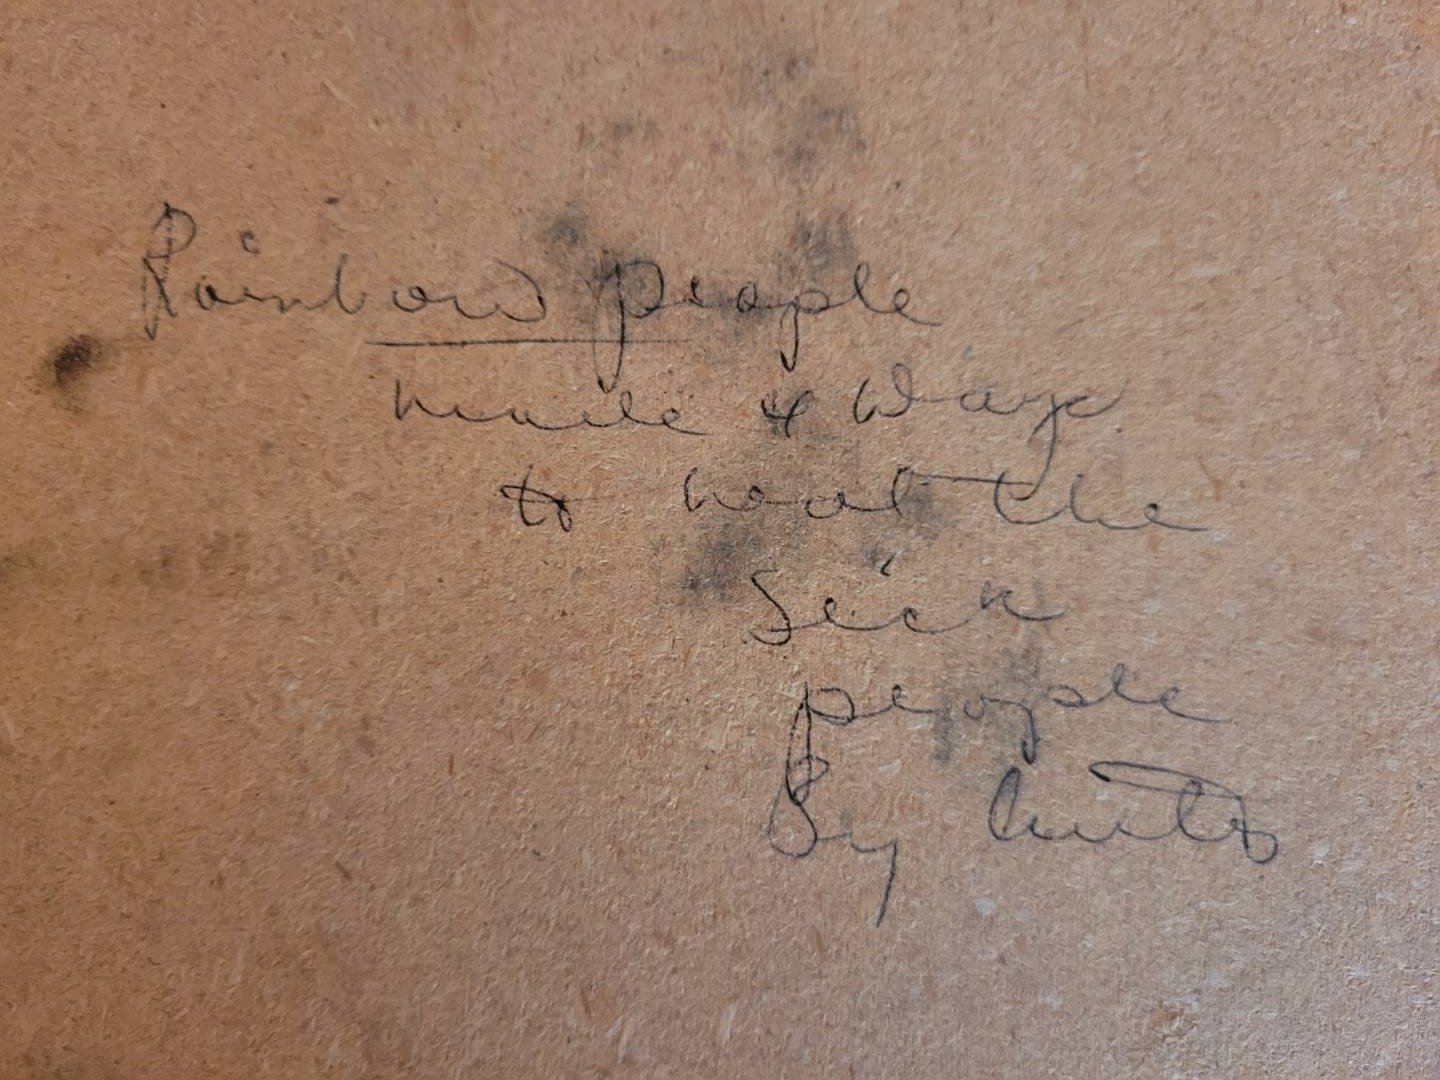 Rainbow people
male & Ways
to heal the
Sick
people
By